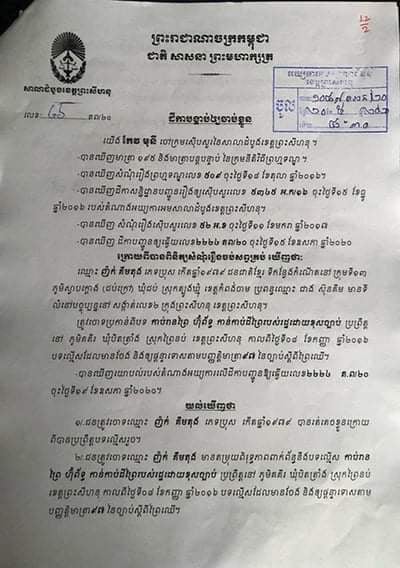 ព្រះរាជាណាចក្រកម្ពុជា
ជាតិ សាសនា ព្រះមហាក្សត្រ
សាលាដំបូងខេត្តព្រះសីហនុ
លេខ: ៦៥ គ/២០
ចូល
ដីកាបង្គាប់ឲ្យចាប់ខ្លួន
យើង កែវ មុនី ចៅក្រមស៊ើបសួរនៃសាលាដំបូងខេត្តព្រះសីហនុ។
-បានឃើញមាត្រា ១៩៥ និងមាត្របន្តបន្ទាប់ នៃក្រមនីតិវិធីព្រហ្មទណ្ឌ។
-បានឃើញសំណុំរឿងព្រហ្មទណ្ឌលេខ ៥០៩ ចុះថ្ងៃទី១៨ ខែតុលា ឆ្នាំ២០១៦។
-បានឃើញដីកាសន្និដ្ឋានបញ្ជូនរឿងឲ្យស៊ើបសួរលេខ ៥៣៤៥ អ.ក/១៦ ចុះថ្ងៃទី១៥ ខែធ្នូ
ឆ្នាំ២០១៦ របស់តំណាងអយ្យការអមសាលាដំបូងខេត្តព្រះសីហនុ។
-បានឃើញ សំណុំរឿងស៊ើបសួរលេខ ៥២ អ.ខ ចុះថ្ងៃទី១១ ខែមករា ឆ្នាំ២០១៧
-បានឃើញ ដីកាបញ្ជូនឱ្យឆ្លើយលេខ២២២៤ គ/២០ ចុះថ្ងៃទី១៥ ខែឧសភា ឆ្នាំ២០២០
ក្រោយពីបានពិនិត្យសំណុំរឿងចប់សព្វគ្រប់ ឃើញថា:
ឈ្មោះ ញ៉ក់ គឹមតុង ភេទប្រុស កើតឆ្នាំ១៩៧៩ ជនជាតិខ្មែរ ទីកន្លែងកំណើតនៅ ក្រុមទី១៣
ភូមិស្វាយក្អោង (ដប់ក្រោ) ឃុំជប់ ស្រុកត្បូងឃ្មុំ ខេត្តកំពង់ចាម ប្រពន្ធឈ្មោះ ជាង ស៊ុនគឹម មានទី
លំនៅបច្ចុប្បន្ននៅ សង្កាត់លេខ១ ក្រុងព្រះសីហនុ ខេត្តព្រះសីហនុ។
ត្រូវចោទប្រកាន់ពីបទ កាប់រានព្រៃ ហ៊ុំព័ទ្ធ កាន់កាប់ដីព្រៃរបស់រដ្ឋដោយខុសច្បាប់ ប្រព្រឹត្ត
នៅ ភូមិគគីរ ឃុំបិតត្រាំង ស្រុកព្រៃនប់ ខេត្តព្រះសីហនុ កាលពីថ្ងៃទី០៨ ខែកញ្ញា ឆ្នាំ២០១៦
បទល្មើសដែលមានចែង និងឲ្យផ្តន្ទាទោសតាមបញ្ញត្តិមាត្រា៩៧ នៃច្បាប់ស្តីពីព្រៃឈើ។
-បានឃើញយោបល់របស់តំណាងអយ្យការលើដីកាបញ្ជូនឱ្យឆ្លើយលេខ២២២៤ គ/២០
ចុះថ្ងៃទី១៩ ខែឧសភា ឆ្នាំ២០២០។
យល់ឃើញថា
១/.ជនត្រូវចោទឈ្មោះ ញ៉ក់ គឹមតុង ភេទប្រុស កើតឆ្នាំ១៩៧៩ បានរត់គេចខ្លួនក្រោយ
ពីបានប្រព្រឹត្តបទល្មើសរួច។
២/.ជនត្រូវចោទឈ្មោះ ញ៉ក់ គឹមតុង មានតម្រុយពិរុទ្ធភាពពាក់ព័ន្ធនឹងបទល្មើស កាប់រាន
ព្រៃ ហ៊ុំព័ទ្ធ កាន់កាប់ដីព្រៃរបស់រដ្ឋដោយខុសច្បាប់ ប្រព្រឹត្តនៅ ភូមិគគីរ ឃុំបិតត្រាំង ស្រុកព្រៃនប់
ខេត្តព្រះសីហនុ កាលពីថ្ងៃទី០៨ ខែកញ្ញា ឆ្នាំ២០១៦ បទល្មើសដែលមានចែង និងឲ្យផ្តន្ទាទោសតាម
បញ្ញត្តិមាត្រា៩៧ នៃច្បាប់ស្តីពីព្រៃឈើ។